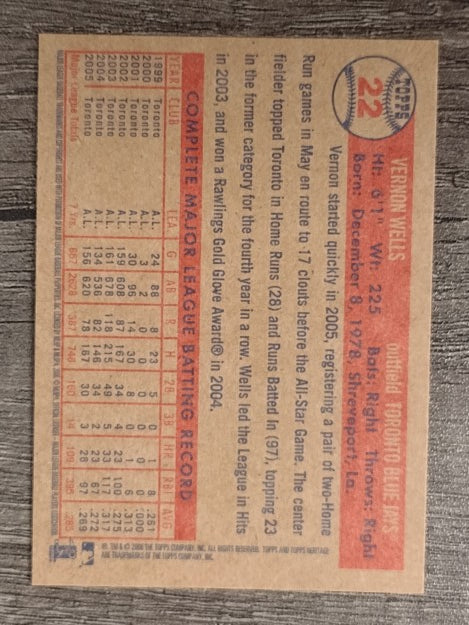 TOPPS
22
VERNON WELLS
outfield TORONTO BLUE JAYS
Ht: 6'1" Wt: 225 Bats: Right Throws: Right
Born: December 8, 1978, Shreveport, La.
Vernon started quickly in 2005, registering a pair of two-Home
Run games in May en route to 17 clouts before the All-Star Game. The center
fielder topped Toronto in Home Runs (28) and Runs Batted In (97), topping 23
in the former category for the fourth year in a row. Wells led the League in Hits
in 2003, and won a Rawlings Gold Glove Award® in 2004.
COMPLETE MAJOR LEAGUE BATTING RECORD
YEAR CLUB LEA G AB R H 2B 3B HR RBI AVG
1999 Toronto A.L. 24 88 8 23 5 0 1 8 .261
2000 Toronto A.L. 3 2 0 0 0 0 0 0 .000
2001 Toronto A.L. 30 96 14 30 8 0 1 6 .313
2002 Toronto A.L. 159 608 87 167 34 4 23 100 .275
2003 Toronto A.L. 161 678 118 215 49 5 33 117 .317
2004 Toronto A.L. 134 536 82 146 34 2 23 67 .272
2005 Toronto A.L. 156 620 78 167 30 3 28 97 .269
Major League Totals 7 Yrs. 667 2628 387 748 160 14 109 395 .285
®, TM & © 2006 THE TOPPS COMPANY, INC. ALL RIGHTS RESERVED. TOPPS AND TOPPS HERITAGE
ARE TRADEMARKS OF THE TOPPS COMPANY, INC.